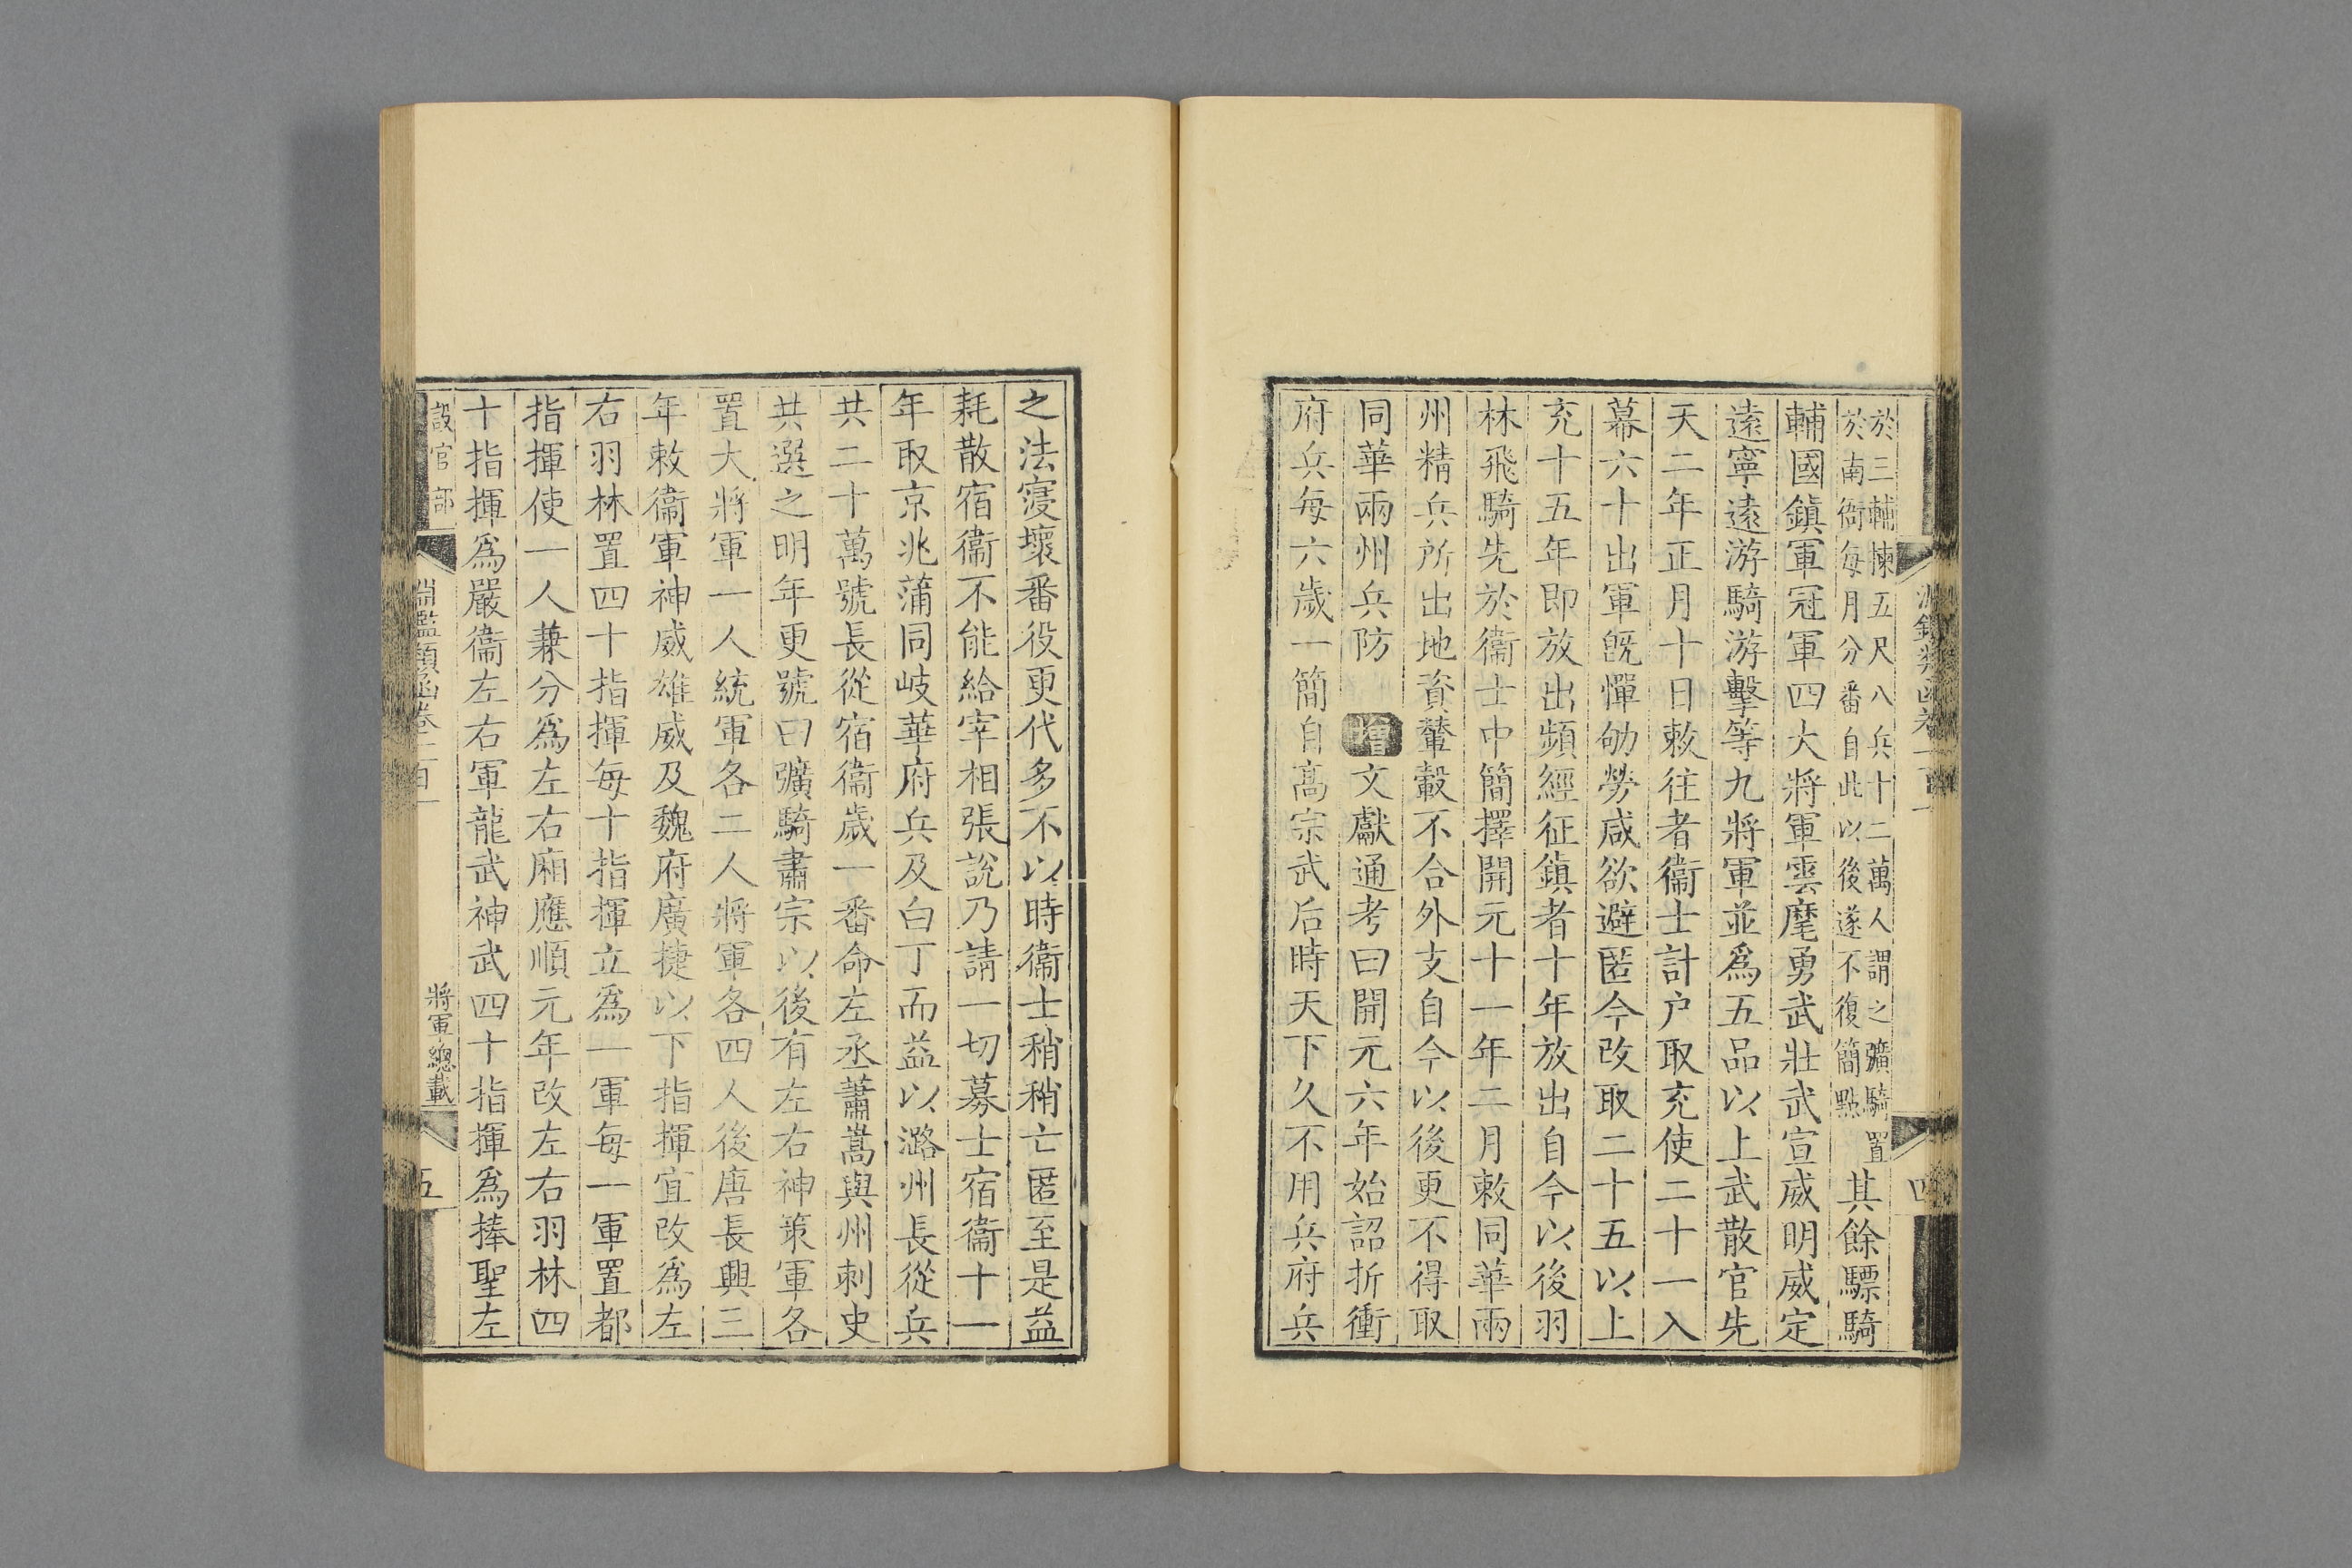 於三輔揀五尺八兵十二萬人謂之彍騎置
於南衙每月分番自此以後遂不復簡點
其餘驃騎
輔國鎮軍冠軍四大將軍雲麾勇武壯武宣威明威定
遠寧遠游騎游擊等九將軍並爲五品以上武散官先
天二年正月十日敕往者衞士計户取充使二十一入
幕六十出軍旣憚劬勞咸欲避匿今改取二十五以上
充十五年即放出頻經征鎮者十年放出自今以後羽
林飛騎先於衞士中簡擇開元十一年二月敕同華兩
州精兵所出地資輦轂不合外支自今以後更不得取
同華兩州兵防 增文獻通考曰開元六年始詔折衝
府兵每六歲一簡自高宗武后時天下久不用兵府兵
之法寖壞番役更代多不以時衞士稍稍亡匿至是益
耗散宿衞不能給宰相張說乃請一切募士宿衞十一
年取京兆蒲同岐華府兵及白丁而益以潞州長從兵
共二十萬號長從宿衞歲一番命左丞蕭嵩與州刺史
共選之明年更號曰彍騎肅宗以後有左右神策軍各
置大將軍一人統軍各二人將軍各四人後唐長興三
年敕衞軍神威雄威及魏府廣捷以下指揮宜改爲左
右羽林置四十指揮每十指揮立爲一軍每一軍置都
指揮使一人兼分爲左右廂應順元年改左右羽林四
十指揮爲嚴衞左右軍龍武神武四十指揮爲捧聖左
設官部
淵鑑類函卷一百一
將軍總載
五